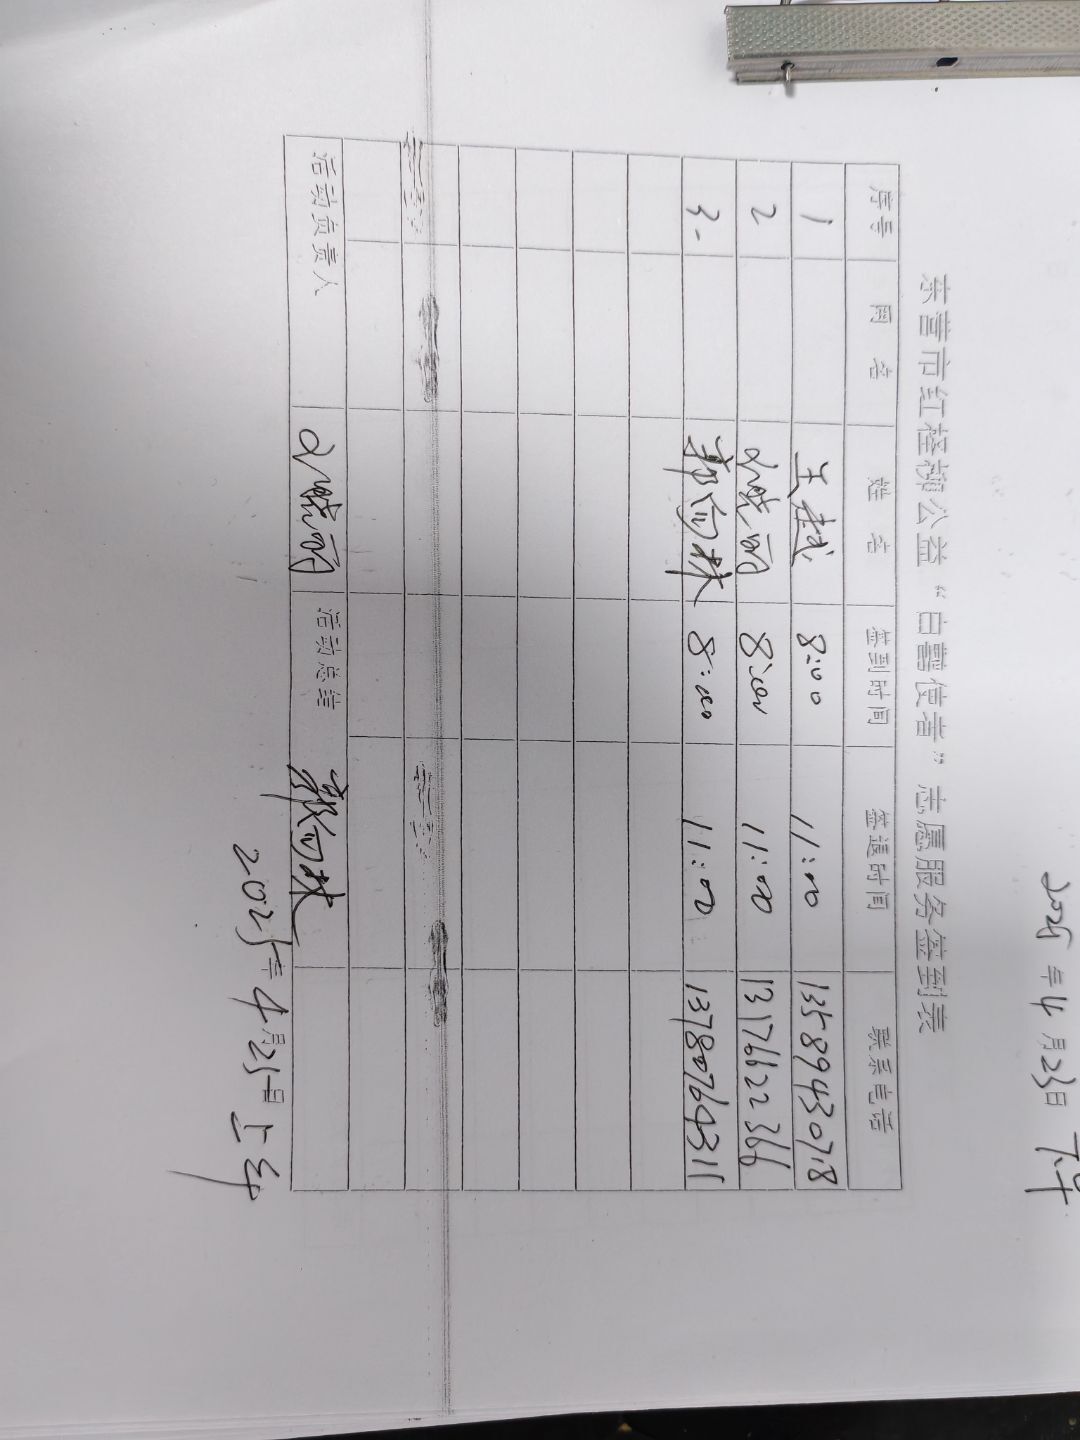 2025年4月23日 下午
东营市红柽柳公益“白鹭使者”志愿服务签到表
序号 网名 姓名 签到时间 签退时间 联系电话
1 王越 8:00 11:00 13589430718
2 晓丽 8:00 11:00 13176622366
3. 8:00 11:00 13780764311
活动负责人 晓丽 活动总结
2025年4月25日上午